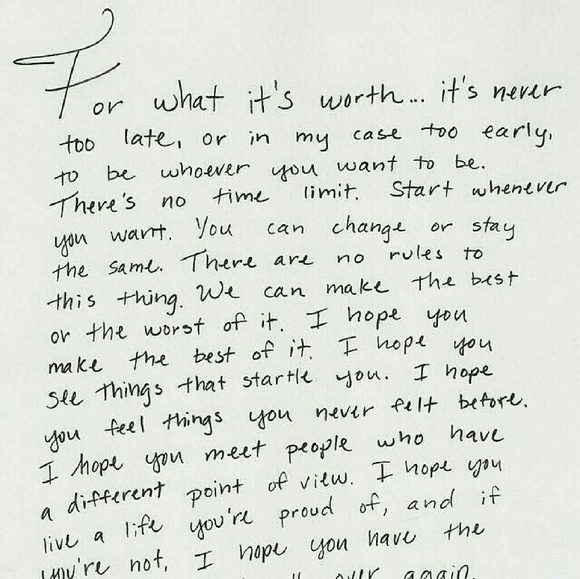 For what it's worth... it's never
too late, or in my case too early,
to be whoever you want to be.
There's no time limit. Start whenever
you want. You can change or stay
the same. There are no rules to
this thing. We can make the best
or the worst of it. I hope you
make the best of it. I hope you
see things that startle you. I hope
you feel things you never felt before.
I hope you meet people who have
a different point of view. I hope you
live a life you're proud of, and if
you're not, I hope you have the
over again.